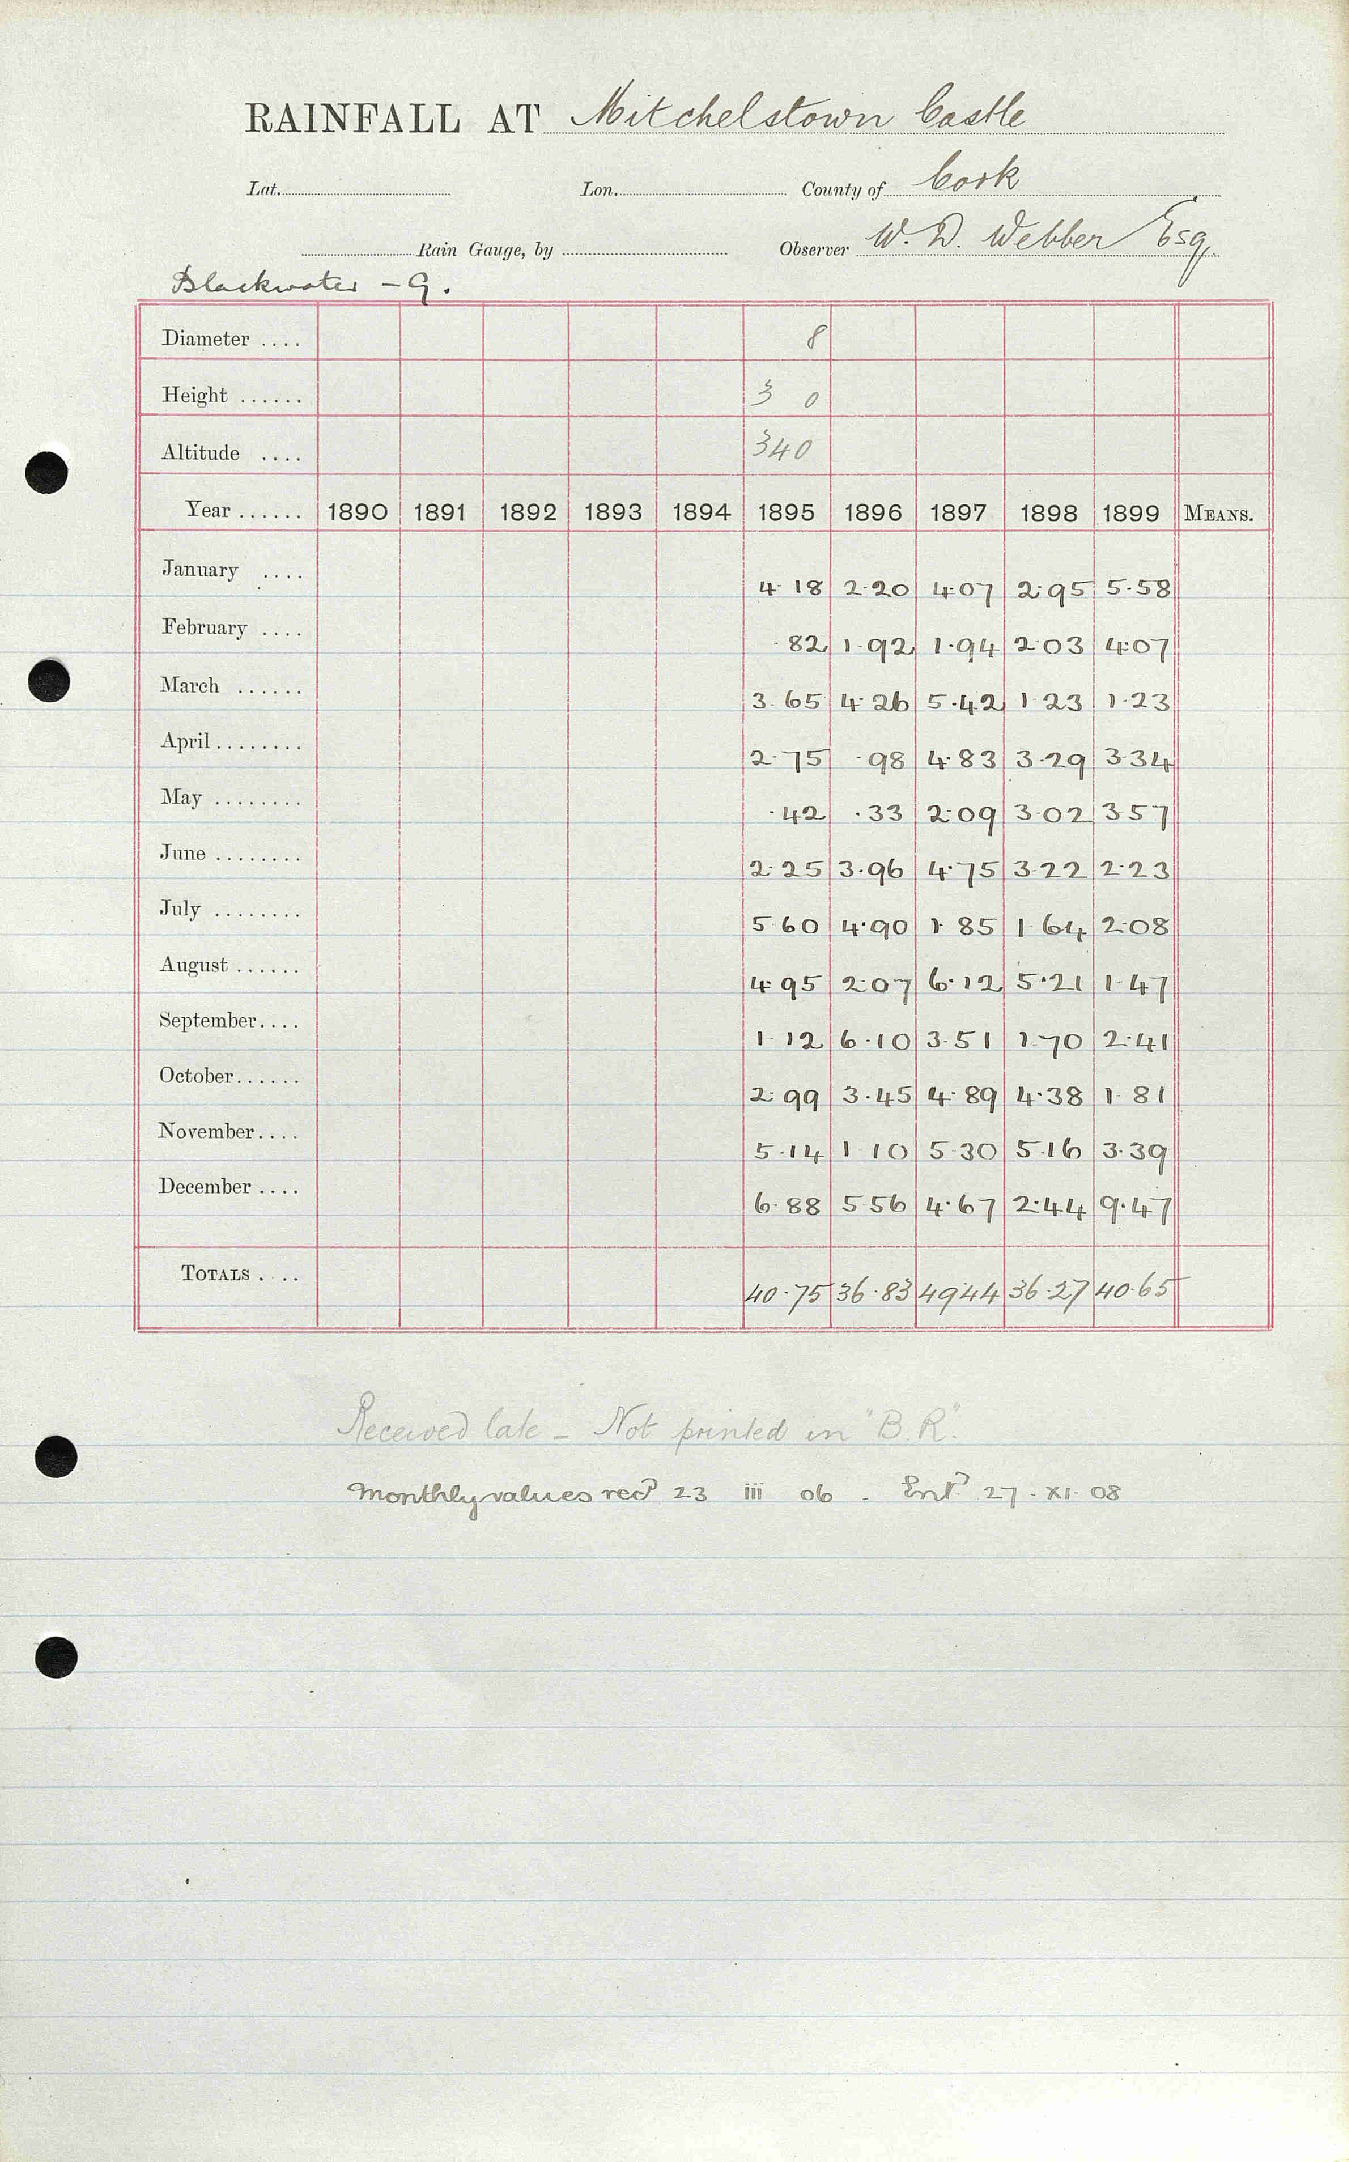 RAINFALL AT Mitchelstown Castle
Lat. Lon. County of Cork
Rain Gauge, by Observer W. D. Webber Esq.
Blackwater - G.
Diameter .... 8
Height ...... 3 0
Altitude .... 340
Year ...... 1890 1891 1892 1893 1894 1895 1896 1897 1898 1899 MEANS.
January .... 4.18 2.20 4.07 2.95 5.58
February .... .82 1.92 1.94 2.03 4.07
March ...... 3.65 4.26 5.42 1.23 1.23
April ........ 2.75 .98 4.83 3.29 3.34
May ........ .42 .33 2.09 3.02 3.57
June ........ 2.25 3.96 4.75 3.22 2.23
July ........ 5.60 4.90 1.85 1.64 2.08
August ...... 4.95 2.07 6.12 5.21 1.47
September.... 1.12 6.10 3.51 1.70 2.41
October...... 2.99 3.45 4.89 4.38 1.81
November.... 5.14 1.10 5.30 5.16 3.39
December .... 6.88 5.56 4.67 2.44 9.47
TOTALS .... 40.75 36.83 49.44 36.27 40.65
Received late - Not printed in "B.R".
Monthly values recd 23 iii 06 - Entd 27.XI.08